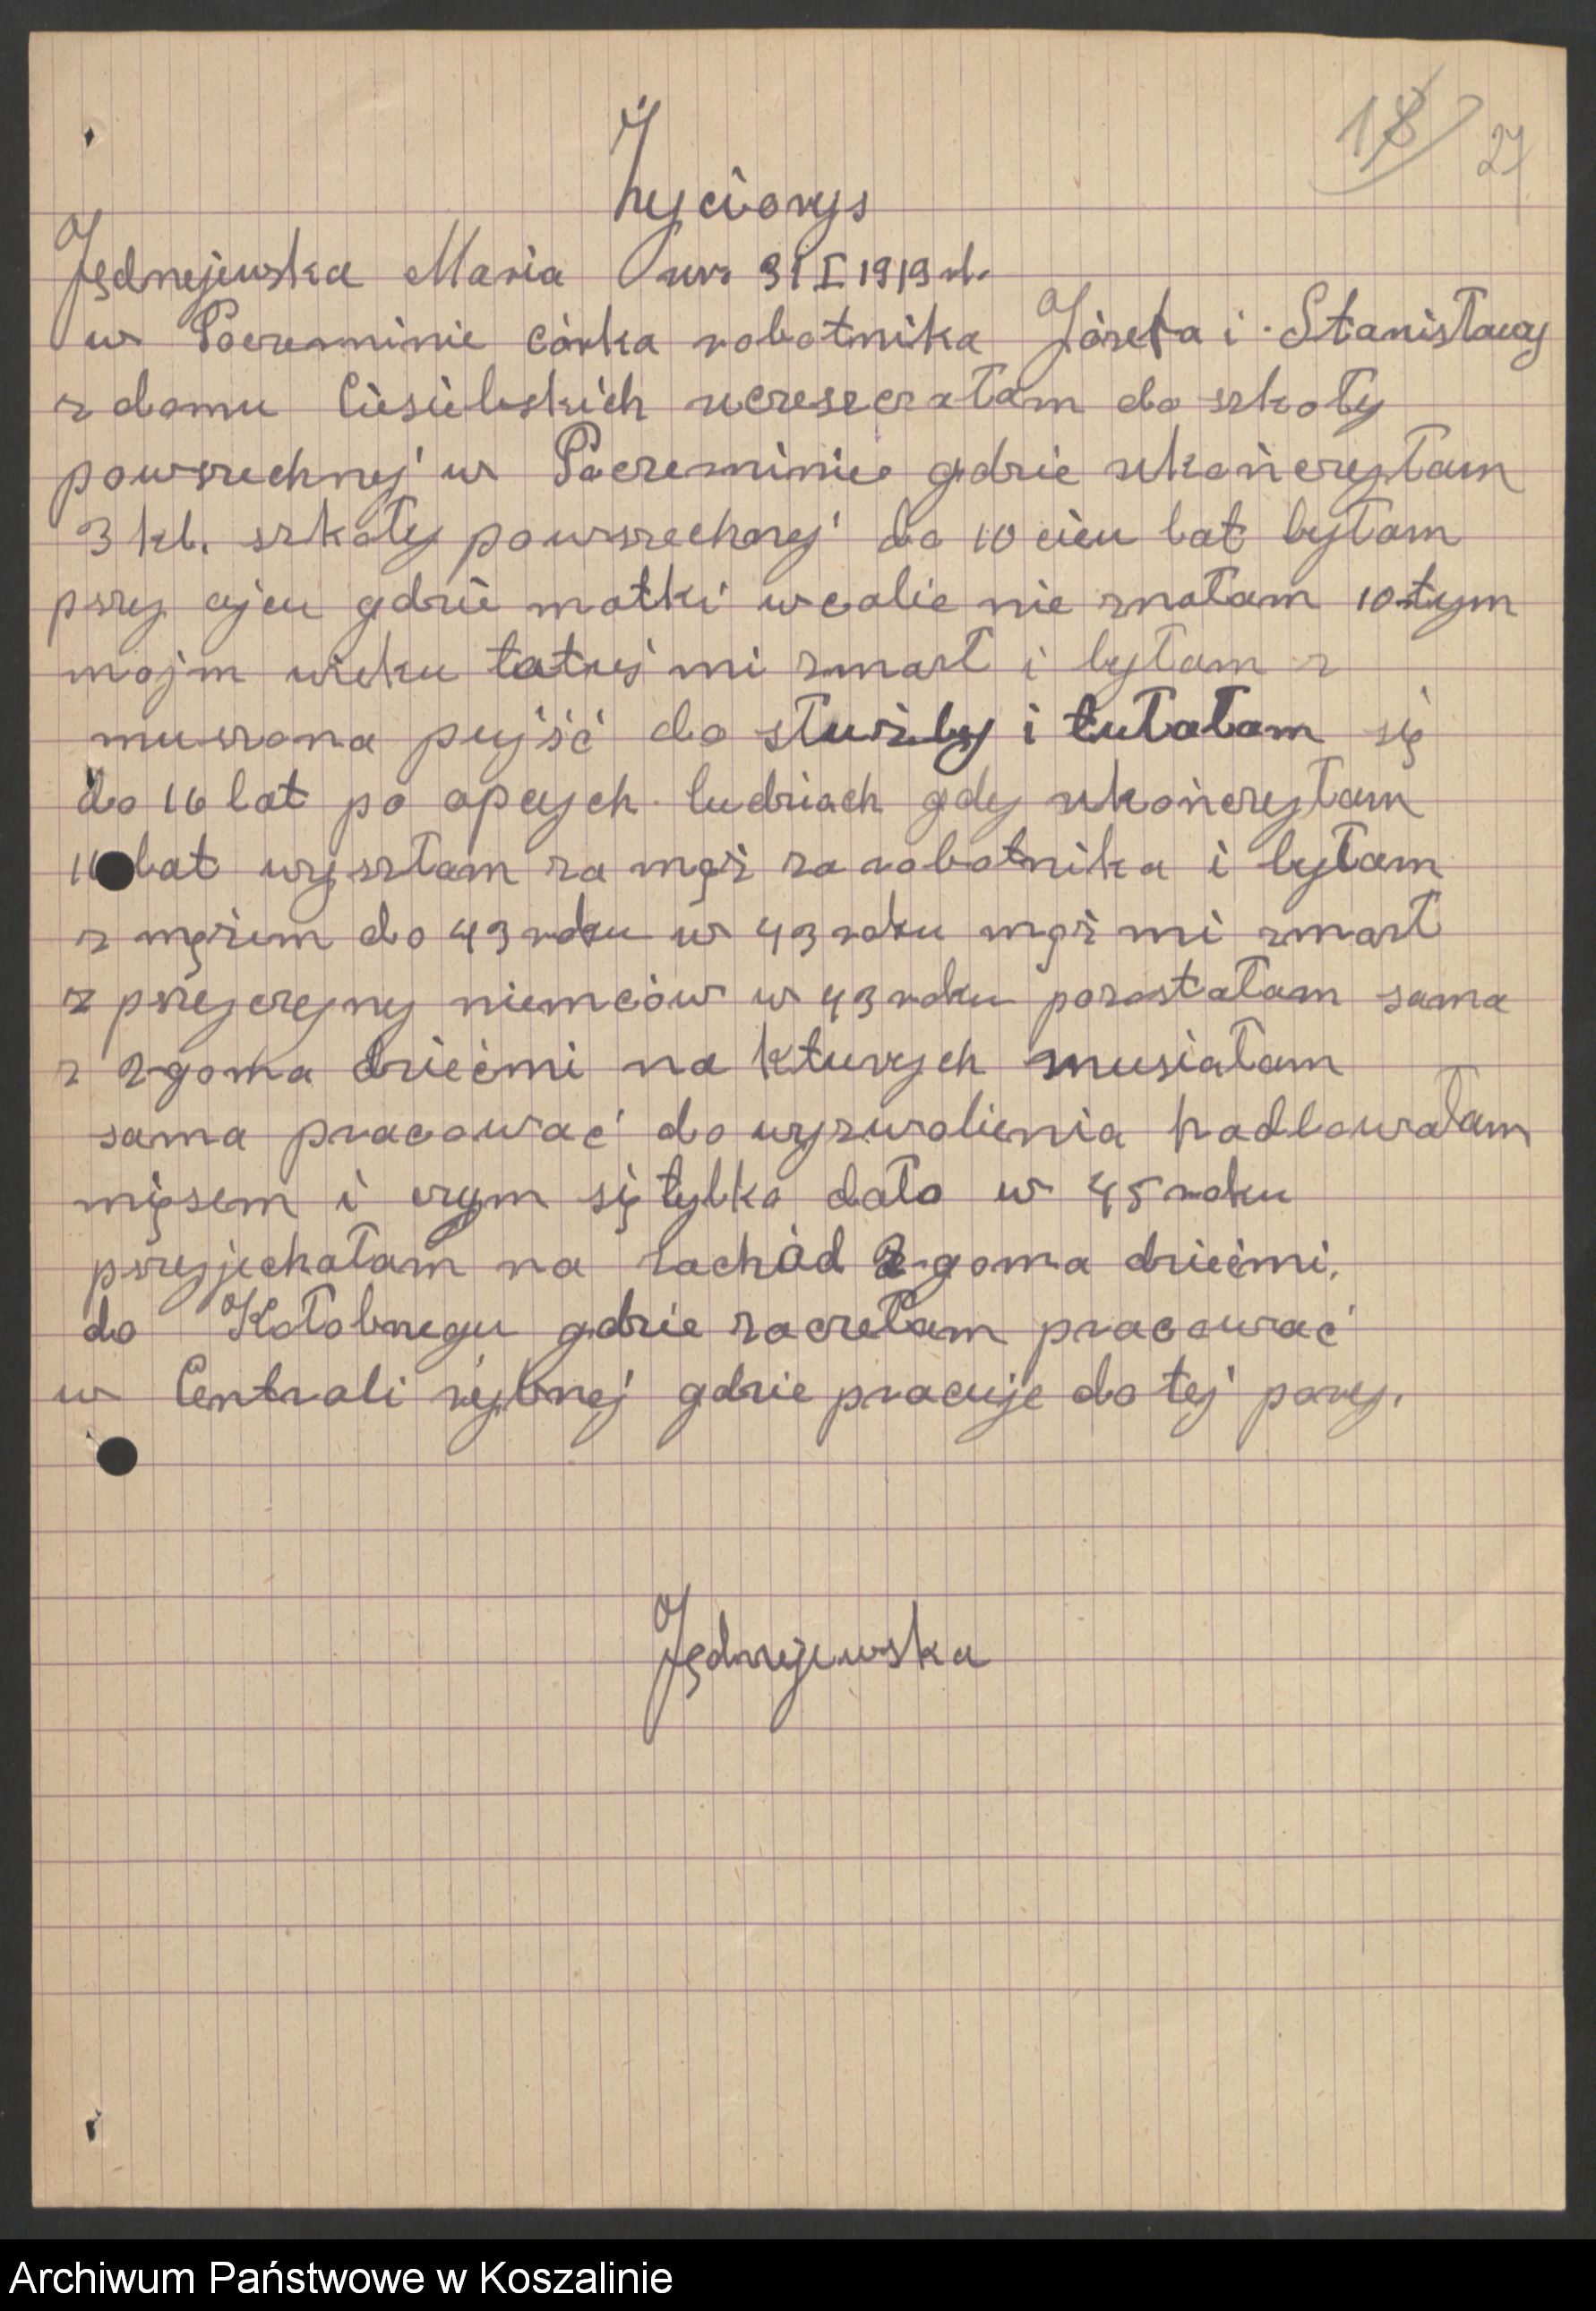 18 27
Życiorys
Jędrzejewska Maria ur 31 I 1919 r.
w Poczerninie córka robotnika Józefa i Stanisławy
z domu Ciesielskich uczeszczałam do szkoły
powszechnej w Poczerninie gdzie ukończyłam
3 kl. szkoły powszechnej do 10 cieu lat byłam
przy ojcu gdzie matki wcalie nie znałam 10 tym
mojm wieku tatuś mi zmarł i byłam z
muszona pujść do służby i tułałam się
do 16 lat po opcych ludziach gdy ukończyłam
16 lat wyszłam za mąż za robotnika i byłam
z mężem do 43 roku w 43 roku mąż mi zmarł
z przyczyny niemców w 43 roku pozostałam sama
z 2goma dziećmi na kturych musiałam
sama pracować do wyzwolienia hadlowałam
mięsem i czym się tylko dało w 45 roku
przyjechałam na zachód z 2-goma dziećmi.
do Kołobrzegu gdzie zaczełam pracować
w Centrali rybnej gdzie pracuje do tej pory.
Jędrzejewska
Archiwum Państwowe w Koszalinie